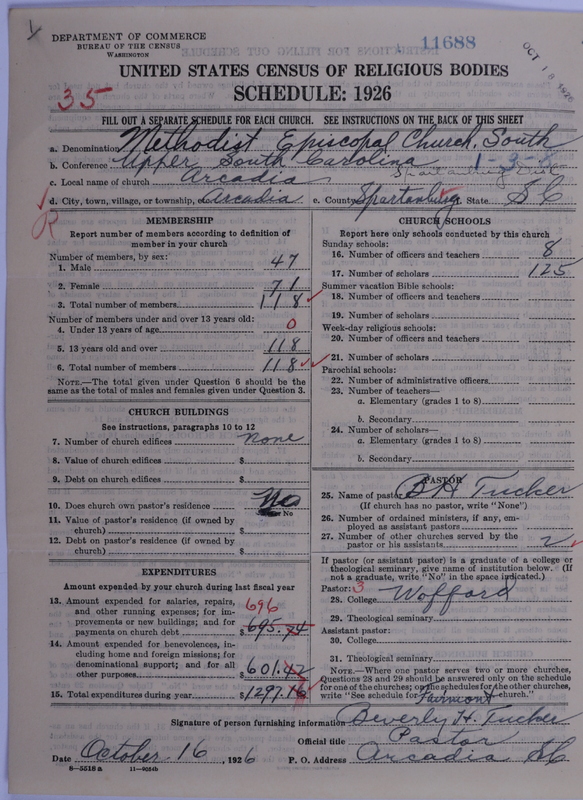 DEPARTMENT OF COMMERCE
BUREAU OF THE CENSUS
WASHINGTON
11688
OCT 18 1926
UNITED STATES CENSUS OF RELIGIOUS BODIES
35
SCHEDULE: 1926
FILL OUT A SEPARATE SCHEDULE FOR EACH CHURCH. SEE INSTRUCTIONS ON THE BACK OF THIS SHEET
a. Denomination Methodist Episcopal Church, South
b. Conference Upper South Carolina 1-3-8
c. Local name of church Arcadia Spartanburg Dist
d. City, town, village, or township, etc. Arcadia e. County Spartanburg State S C
R
MEMBERSHIP
Report number of members according to definition of member in your church
Number of members, by sex:
1. Male 47
2. Female 71
3. Total number of members 118
Number of members under and over 13 years old:
4. Under 13 years of age 0
5. 13 years old and over 118
6. Total number of members 118
NOTE.—The total given under Question 6 should be the same as the total of males and females given under Question 3.
CHURCH BUILDINGS
See instructions, paragraphs 10 to 12
7. Number of church edifices none
8. Value of church edifices $
9. Debt on church edifices $
10. Does church own pastor's residence No
or No
11. Value of pastor's residence (if owned by church) $
12. Debt on pastor's residence (if owned by church) $
EXPENDITURES
Amount expended by your church during last fiscal year
13. Amount expended for salaries, repairs, and other running expenses; for improvements or new building; and for payments on church debt $ 695.74
696
14. Amount expended for benevolences, including home and foreign missions; for denominational support; and for all other purposes $ 601.42
15. Total expenditures during year $ 1297.16
CHURCH SCHOOLS
Report here only schools conducted by this church
Sunday schools:
16. Number of officers and teachers 8
17. Number of scholars 125
Summer vacation Bible schools:
18. Number of officers and teachers
19. Number of scholars
Week-day religious schools:
20. Number of officers and teachers
21. Number of scholars
Parochial schools:
22. Number of administrative officers
23. Number of teachers—
a. Elementary (grades 1 to 8)
b. Secondary
24. Number of scholars—
a. Elementary (grades 1 to 8)
b. Secondary
PASTOR
25. Name of pastor B H Tucker
(If church has no pastor, write "None")
26. Number of ordained ministers, if any, employed as assistant pastors
27. Number of other churches served by the pastor or his assistants 2
If pastor (or assistant pastor) is a graduate of a college or theological seminary, give name of institution below. (If not a graduate, write "No" in the space indicated.)
Pastor: 3
28. College Wofford
29. Theological seminary
Assistant pastor:
30. College
31. Theological seminary
NOTE.—Where one pastor serves two or more churches, Questions 28 and 29 should be answered only on the schedule for one of the churches; on the schedules for the other churches, write "See schedule for Fairmont church."
Signature of person furnishing information Beverly H. Tucker
Official title Pastor
Date October 16, 1926 P. O. Address Arcadia S C
8—5518 a 11—9084b